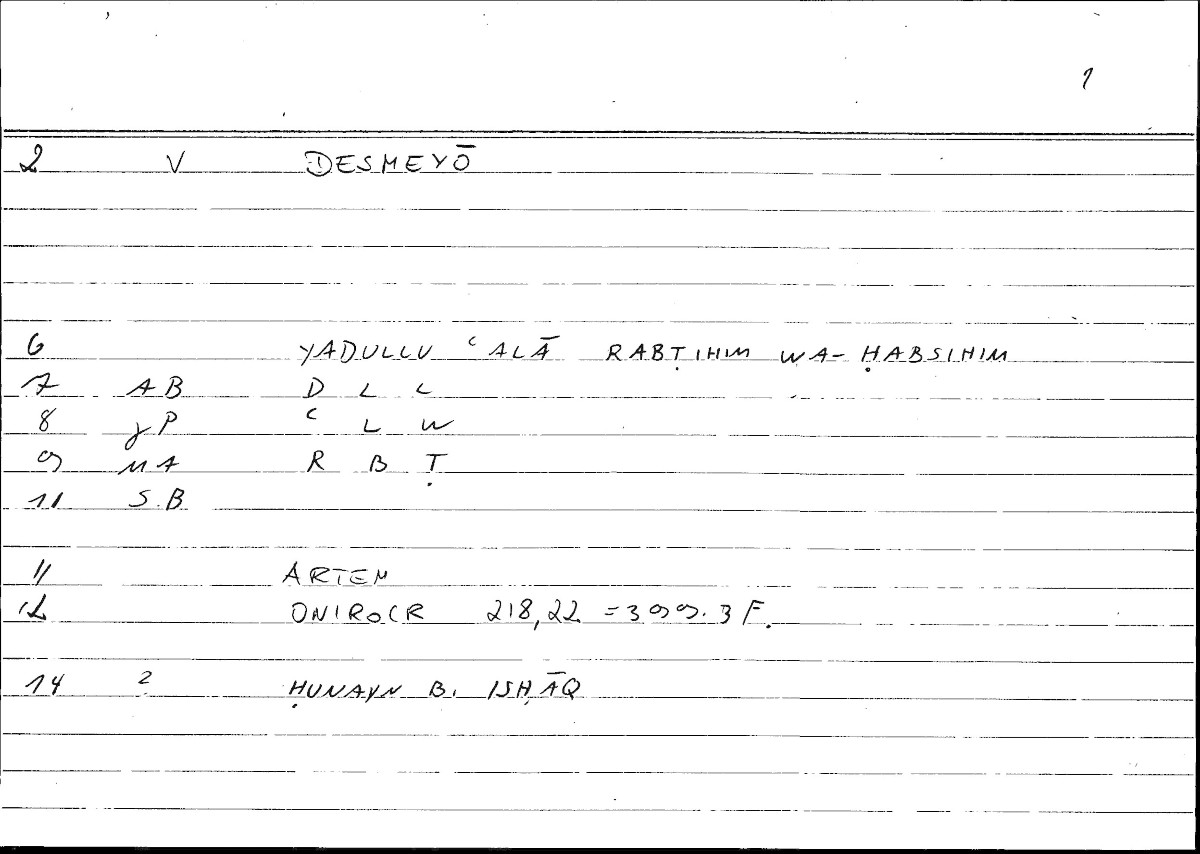 1
2 V DESMEYŌ
6 YADULLU ʿALĀ RABṬIHIM WA-ḤABSIHIM
7 AB D L L
8 γP ʿ L W
9 MA R B Ṭ
11 S.B
11 ARTEM
12 ONIROCR 218,22 =399.3 F.
14 2 ḤUNAYN B. ISḤĀQ